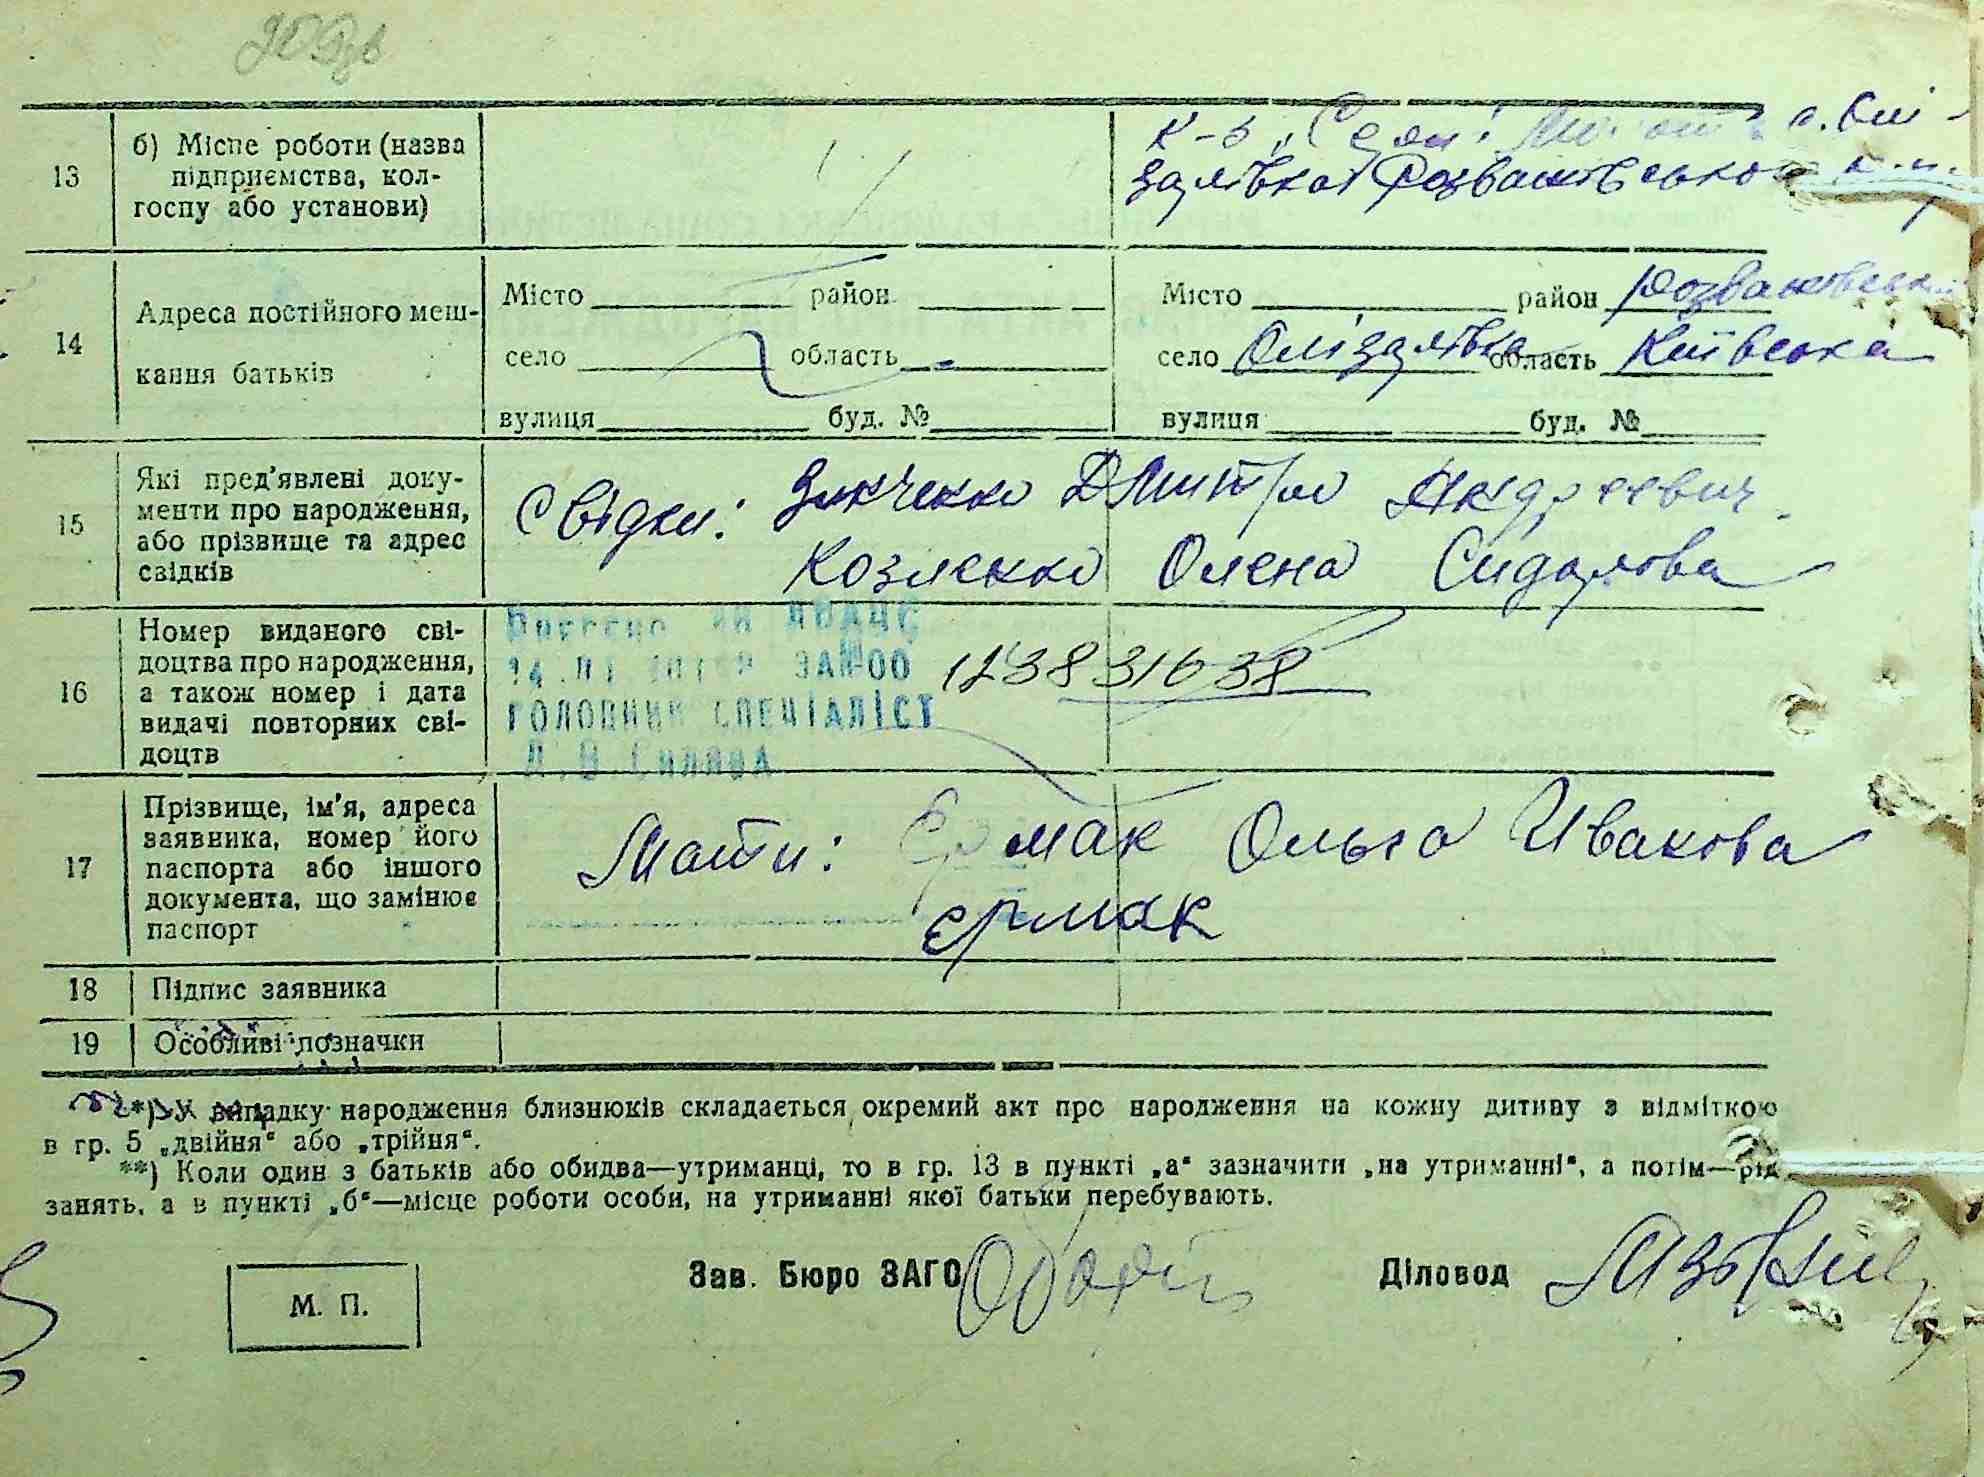 13 б) Місце роботи (назва підприємства, колгоспу або установи) к-з с. Олі-
зарівка Розважівського
14 Адреса постійного меш-
кання батьків
Місто район
село область
вулиця буд. №
Місто район Розважівський
село Олізарівка область Київська
вулиця буд. №
15 Які пред'явлені доку-
менти про народження,
або прізвище та адрес
свідків
Свідки: Зінченко Дмитро Андреевич
Козленко Олена Сидорова
16 Номер виданого сві-
доцтва про народження,
а також номер і дата
видачі повторних сві-
доцтв
ЗА №00
ГОЛОВНИЙ СПЕЦІАЛІСТ
123831638
17 Прізвище, ім'я, адреса
заявника, номер його
паспорта або іншого
документа, що замінює
паспорт
Мати: Ермак Ольга Иванова
Єрмак
18 Підпис заявника
19 Особливі позначки
*) У випадку народження близнюків складається окремий акт про народження на кожну дитину з відміткою
в гр. 5 „двійня“ або „трійня“.
**) Коли один з батьків або обидва—утриманці, то в гр. 13 в пункті „а“ зазначити „на утриманні“, а потім—рід
занять, а в пункті „б“—місце роботи особи, на утриманні якої батьки перебувають.
М. П.
Зав. Бюро ЗАГС
Діловод